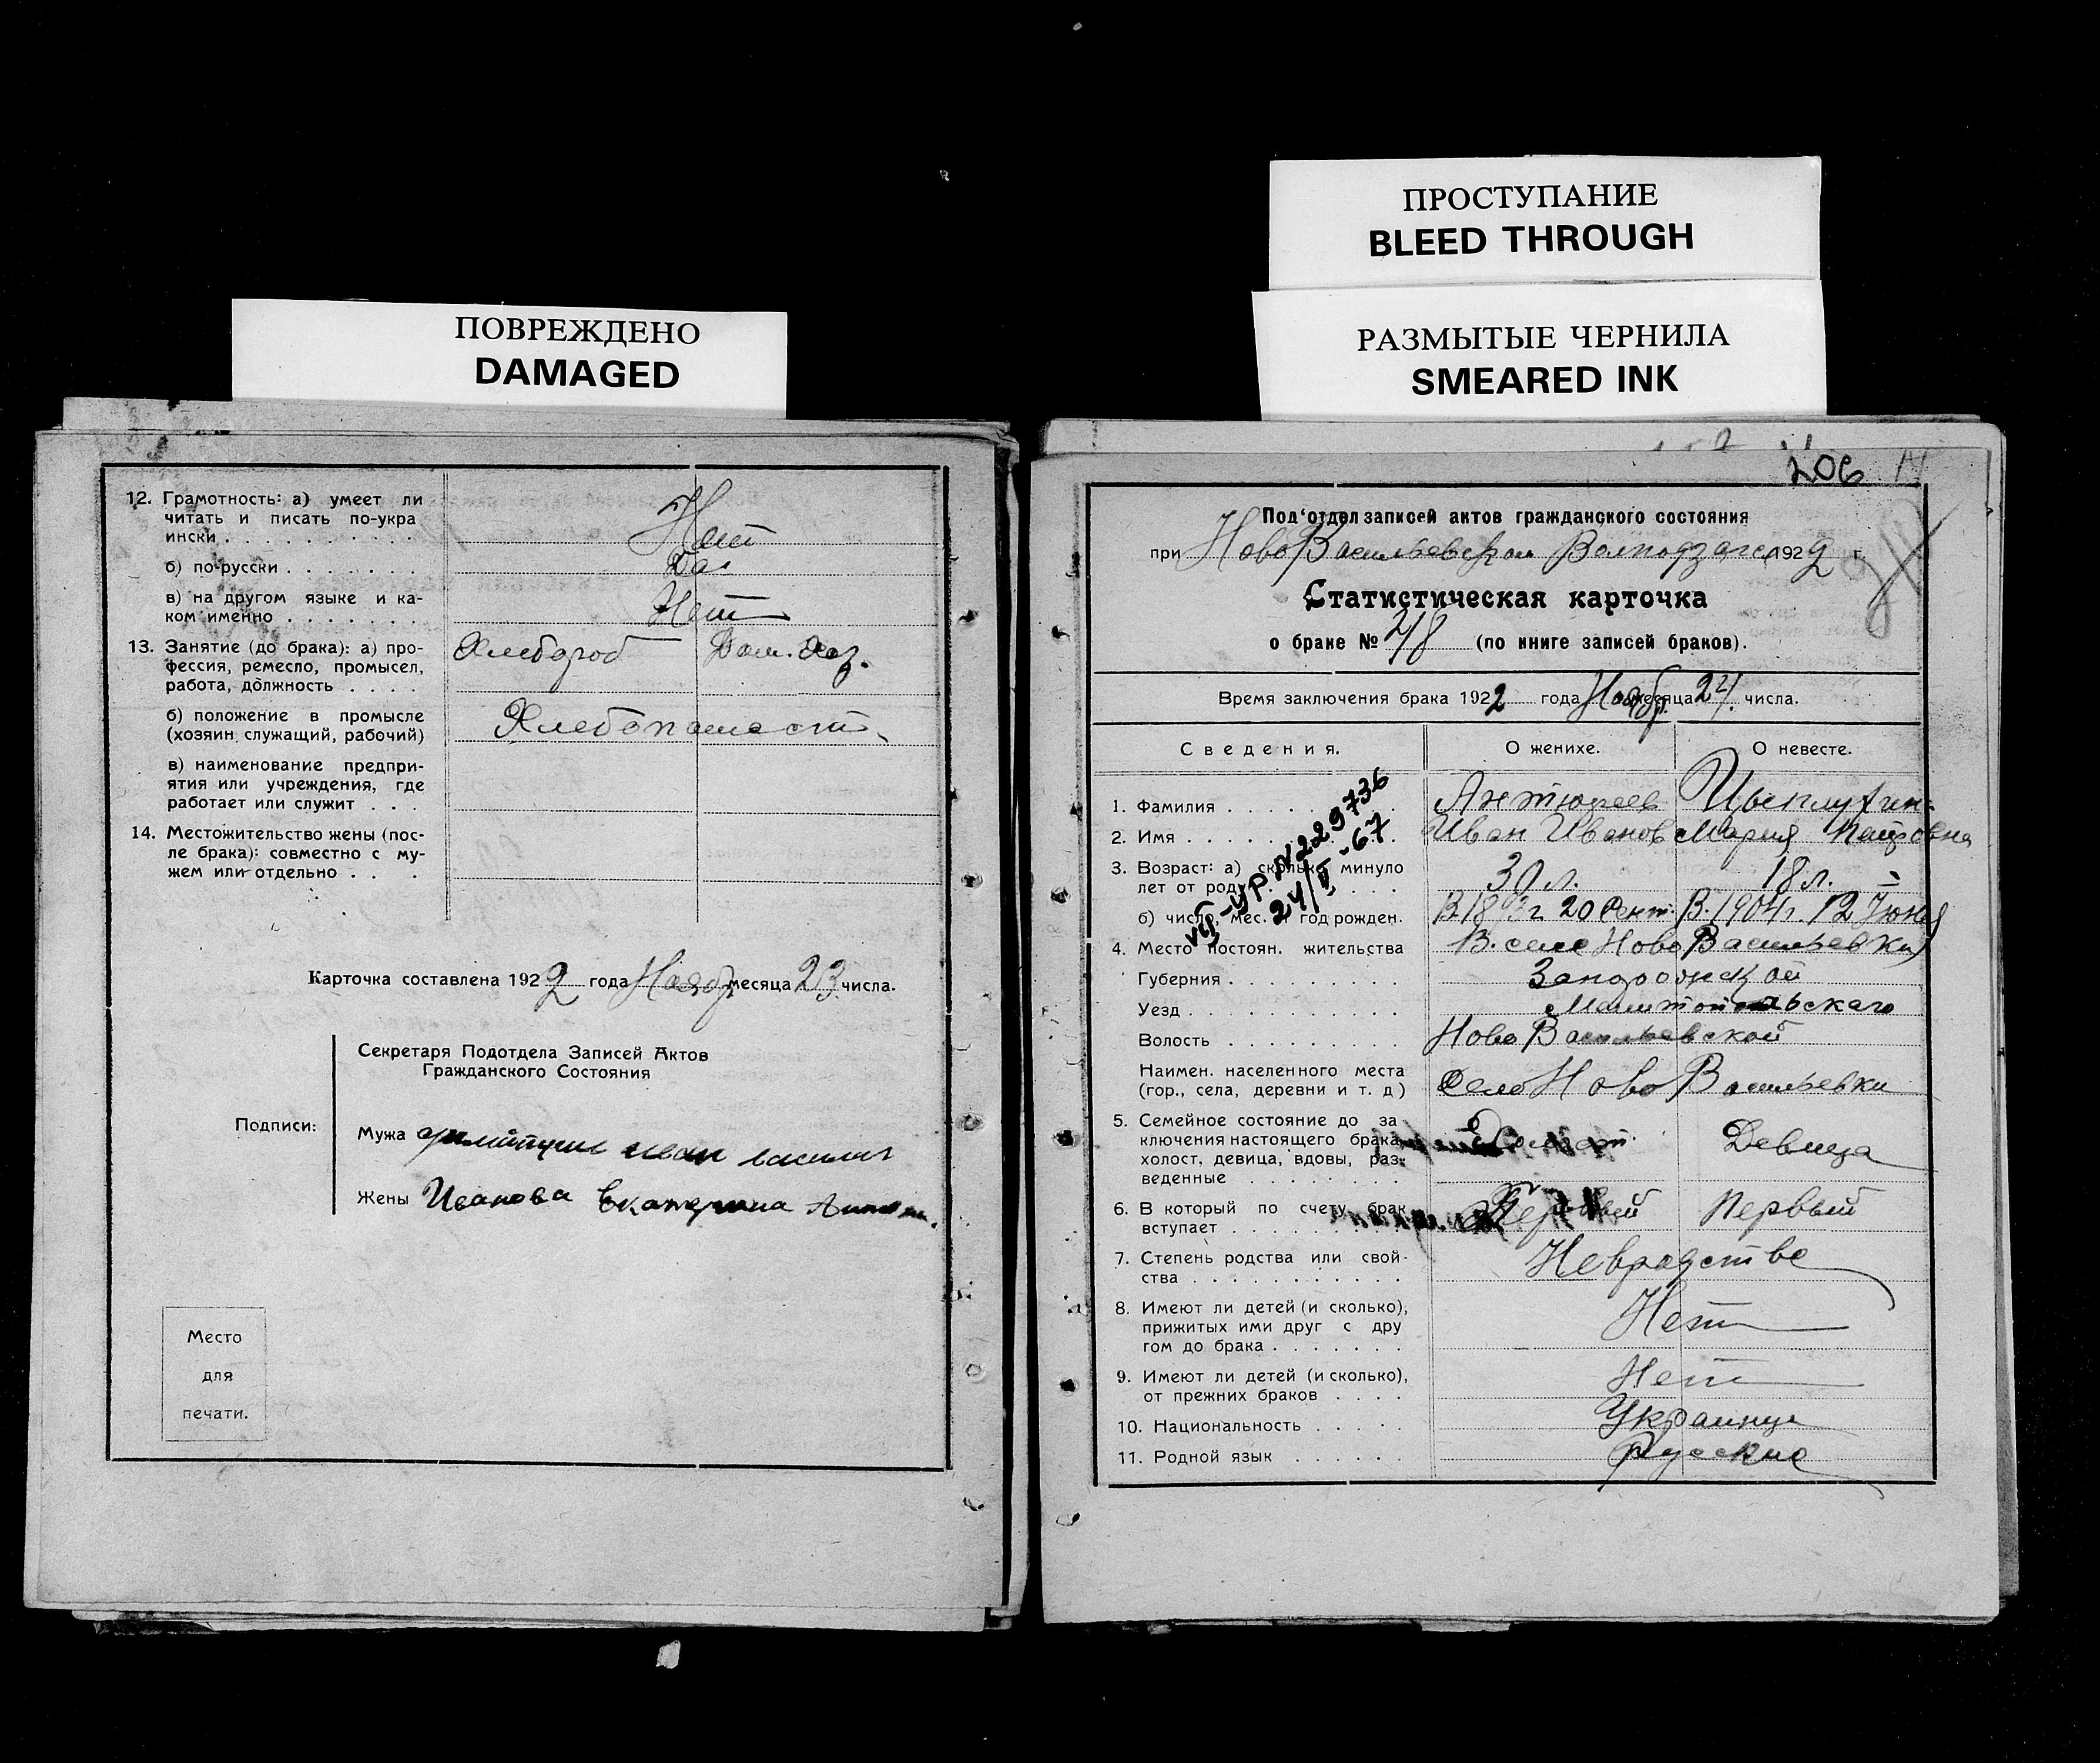 ПОВРЕЖДЕНО
DAMAGED
12. Грамотность: а) умеет ли
читать и писать по-укра
ински . . . . . . . . . . Нет
б) по-русски . . . . . . . Да
в) на другом языке и ка-
ком именно . . . . . . . Нет
13. Занятие (до брака): а) про-
фессия, ремесло, промысел,
работа, должность . . . . Хлебороб Дом. хоз.
б) положение в промысле
(хозяин, служащий, рабочий) Хлебопашест.
в) наименование предпри-
ятия или учреждения, где
работает или служит . . .
14. Местожительство жены (пос-
ле брака): совместно с му-
жем или отдельно . . . .
Карточка составлена 1922 года Ноябр месяца 23 числа.
Секретаря Подотдела Записей Актов
Гражданского Состояния
Подписи:
Мужа иван василич
Жены Иванова Екатерина
Место
для
печати.
ПРОСТУПАНИЕ
BLEED THROUGH
РАЗМЫТЫЕ ЧЕРНИЛА
SMEARED INK
206 14
Под'отдел записей актов гражданского состояния
при НовоВасильевском 1922 г.
Статистическая карточка
о браке № 48 (по книге записей браков).
Время заключения брака 1922 года Ноябр. месяца 24. числа.
Сведения. О женихе. О невесте.
1. Фамилия . . . . . . .
2. Имя . . . . . . . Иван Иванов Мария Петровна
3. Возраст: а) сколько минуло
лет от роду . . . . . 30 л. 18 л.
б) число, мес. и год рожден. 20 Сент. В. 1904 г. 12 Июня
№ 229736
24/V-67
4. Место постоян. жительства В. селе НовоВасильевки
Губерния . . . . . . . . . Запорожской
Уезд . . . . . . . . . . . Мелитопольскаго
Волость . . . . . . . . . НовоВасильевской
Наимен. населенного места
(гор., села, деревни и т. д) Село НовоВасильевки
5. Семейное состояние до за
ключения настоящего брака
холост, девица, вдовы, раз-
веденные . . . . . . . . Девица
6. В который по счету брак
вступает . . . . . . . . Первый Первый
7. Степень родства или свой-
ства . . . . . . . . . . . Невродстве
8. Имеют ли детей (и сколько),
прижитых ими друг с дру
гом до брака . . . . . . . Нет
9. Имеют ли детей (и сколько),
от прежних браков . . . . Нет
10. Национальность . . . . Украинци
11. Родной язык . . . . . . Русские